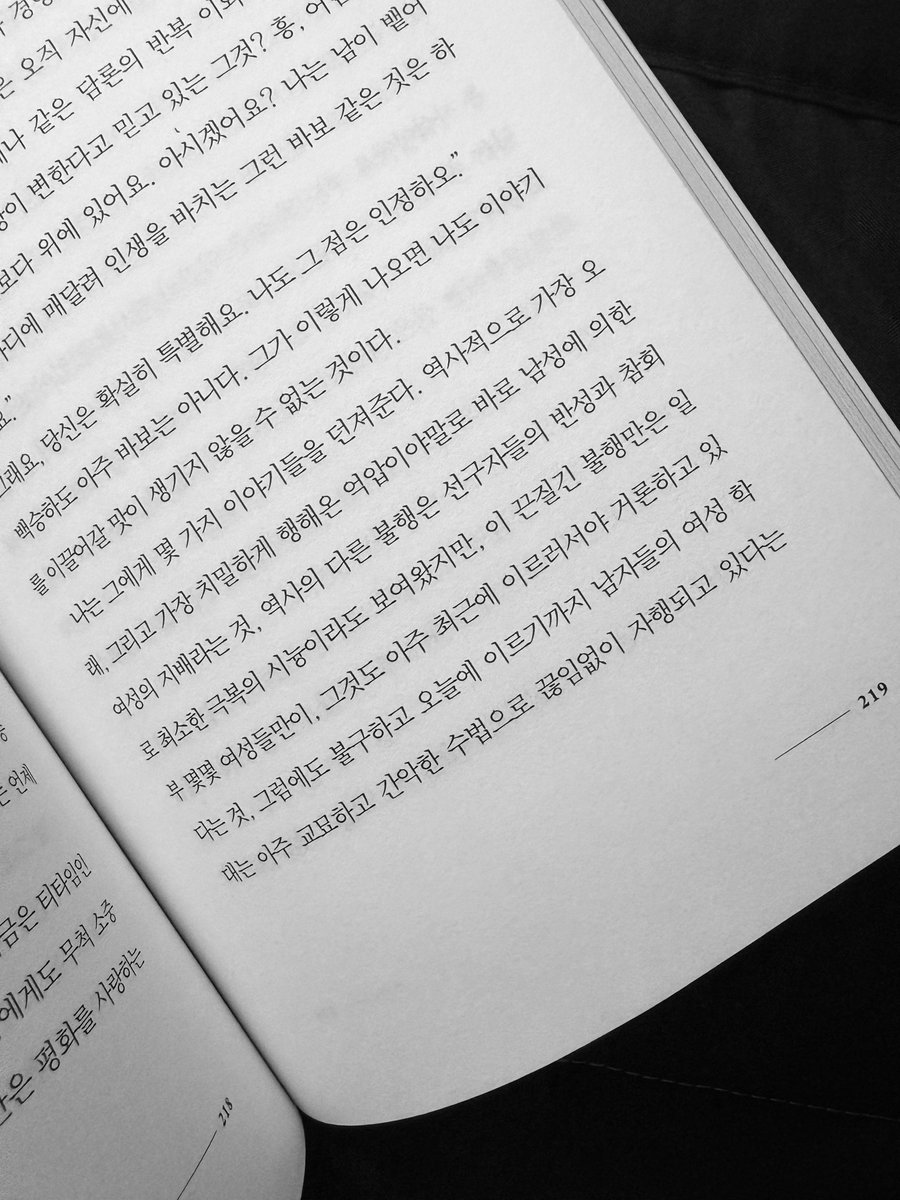 오직 자신에
같은 담론의 반복
변한다고 믿고 있는 그것? 흥,
보다 위에 있어요. 아시겠어요? 나는 남이 뱉어
매달려 인생을 바치는 그런 바보 같은 짓은 하
요.”
그래요, 당신은 확실히 특별해요. 나도 그 점은 인정하오.”
백승하도 아주 바보는 아니다. 그가 이렇게 나오면 나도 이야기
를 이끌어갈 맛이 생기지 않을 수 없는 것이다.
나는 그에게 몇 가지 이야기들을 던져준다. 역사적으로 가장 오
래, 그리고 가장 치밀하게 행해온 억압이야말로 바로 남성에 의한
여성의 지배라는 것, 역사의 다른 불행은 선구자들의 반성과 참회
로 최소한 극복의 시늉이라도 보여왔지만, 이 끈질긴 불행만은 일
부 몇몇 여성들만이, 그것도 아주 최근에 이르러서야 거론하고 있
다는 것, 그럼에도 불구하고 오늘에 이르기까지 남자들의 여성 학
대는 아주 교묘하고 간악한 수법으로 끊임없이 자행되고 있다는
219
언제
금은 티타임인
에게도 무척 소중
은 평화를 사랑하는
218